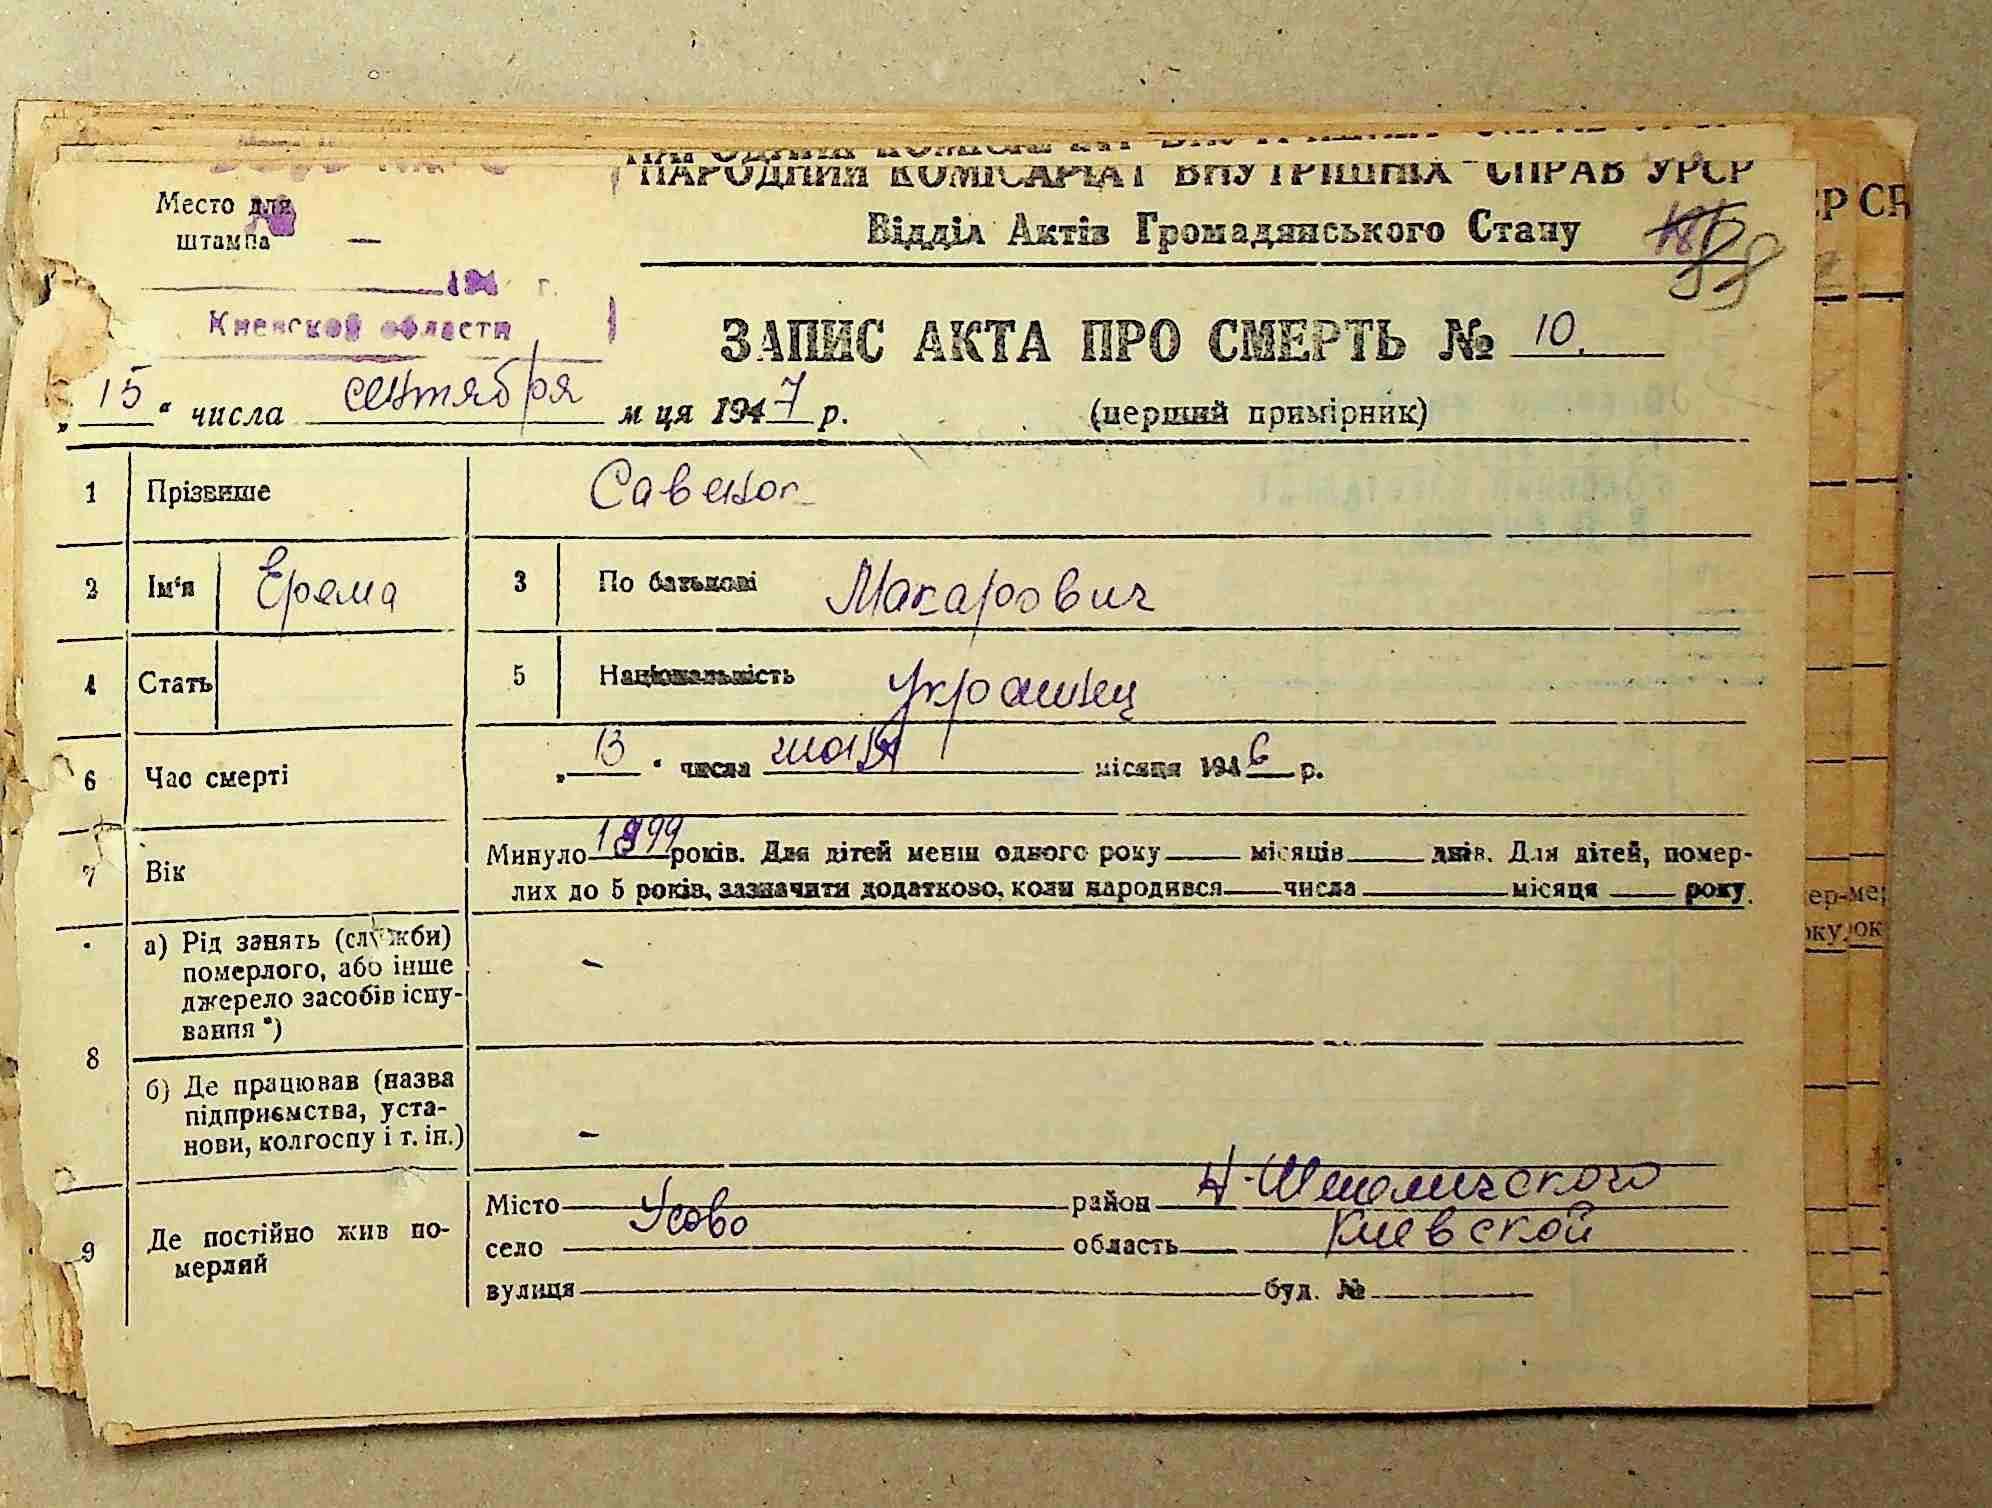 НАРОДНИЙ КОМІСАРІАТ ВНУТРІШНІХ СПРАВ УРСР
Место для
штампа —
Відділ Актів Громадянського Стану
88
194 г.
Киевской области
ЗАПИС АКТА ПРО СМЕРТЬ № 10.
„ 15 “ числа сентября м ця 1947 р.
(перший примірник)
1 Прізвище Савенок
2 Ім'я Ерема 3 По батькові Макарович
4 Стать 5 Національність украинец
6 Час смерті „ 13 “ числа мая місяця 1946 р.
7 Вік Минуло 1899 років. Для дітей менш одного року — місяців — днів. Для дітей, помер-
лих до 5 років, зазначити додатково, коли народився — числа — місяця — року.
8 а) Рід занять (служби)
померлого, або інше
джерело засобів існу-
вання *)
–
б) Де працював (назва
підприємства, уста-
нови, колгоспу і т. ін.)
–
9 Де постійно жив по-
мерлий
Місто район Н-Шепеличского
село Усово область Киевской
вулиця буд. №
ЄР СР
ер-мер
оку, ок